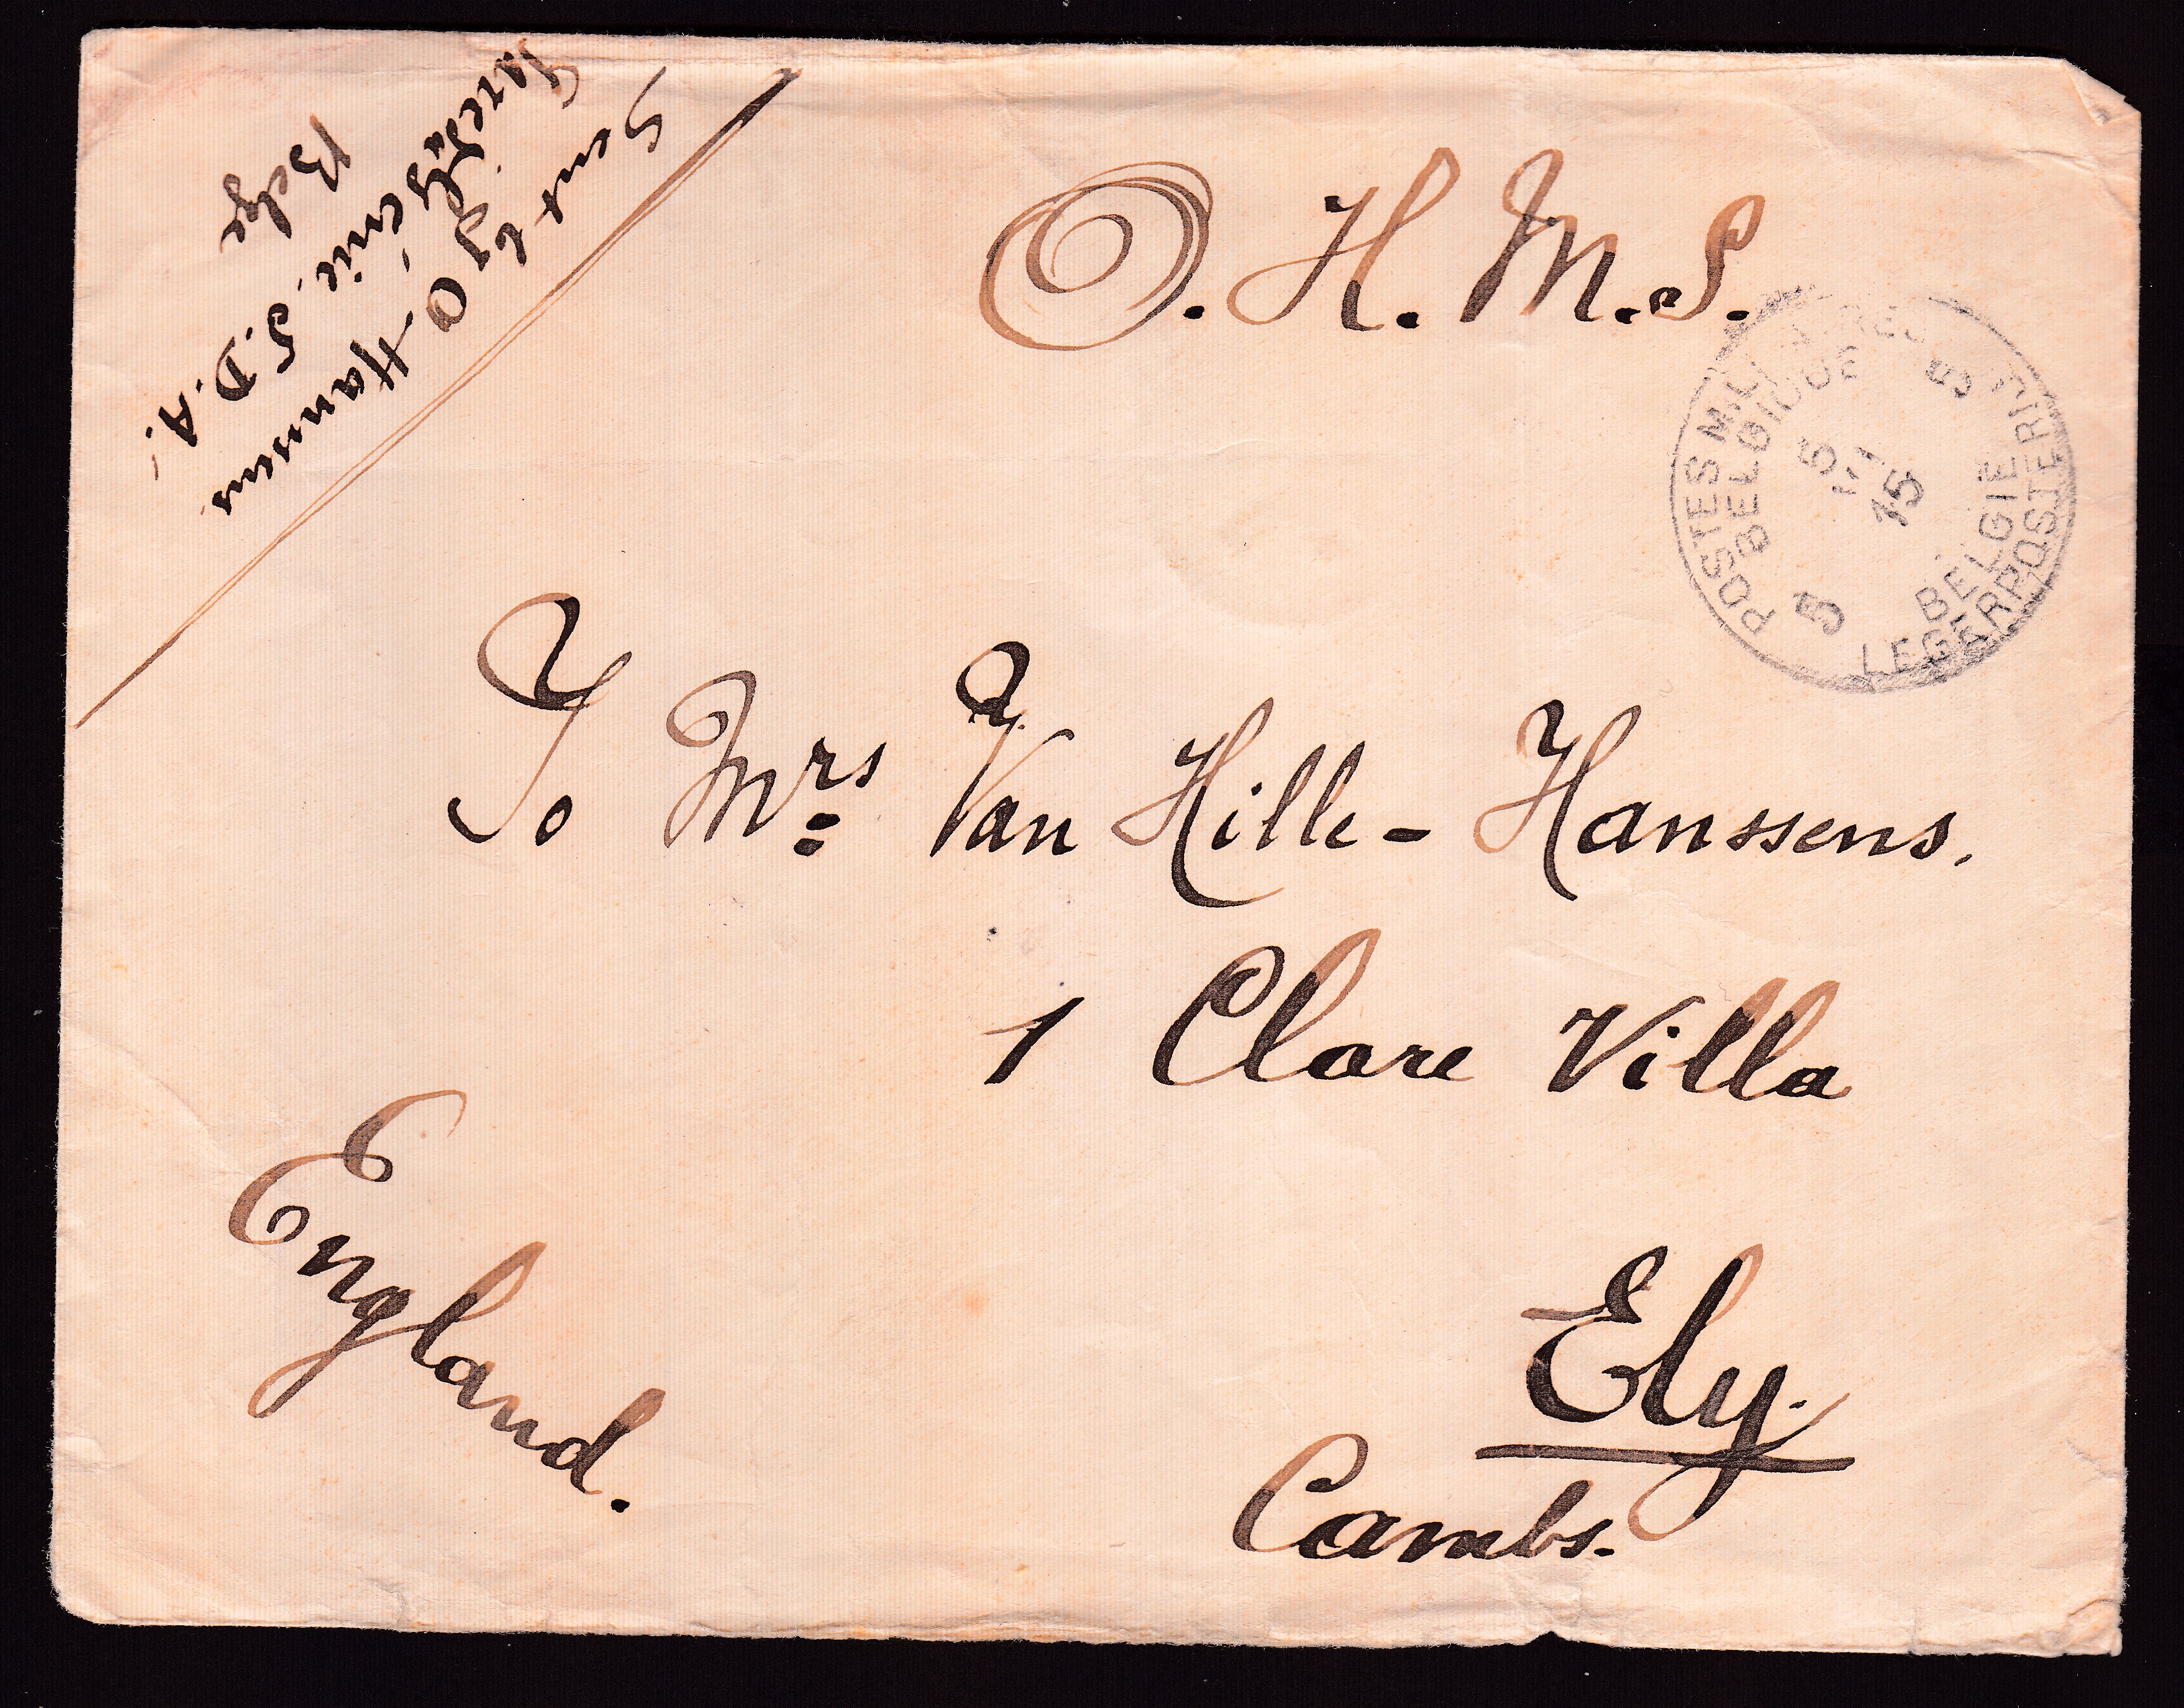 Sent by O. Hanssens
Génie S.D.A.
Belge
O.H.M.S.
POSTES MILITAIRES
BELGIQUE
5
5
VI
15
5
BELGIE
LEGERPOSTERIJ
To Mrs Van Hille-Hanssens.
1 Clare Villa
England.
Ely.
Cambs.